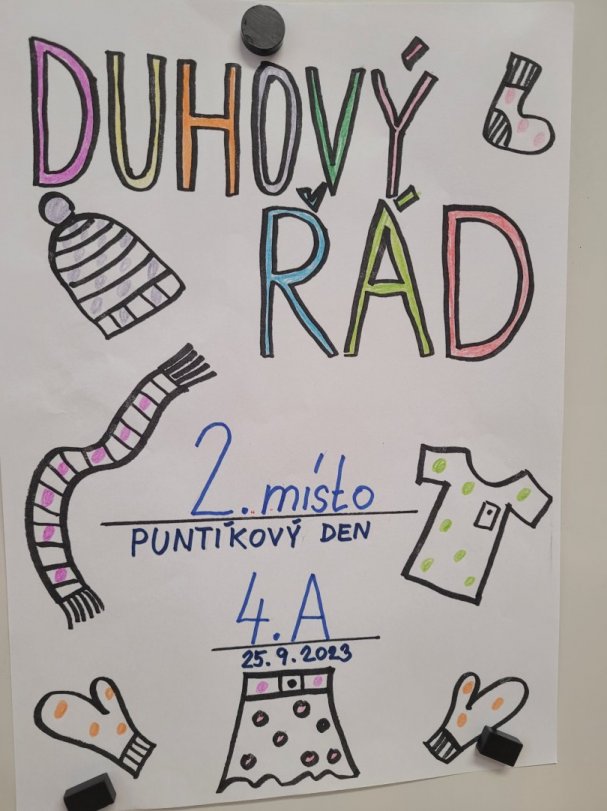 DUHOVÝ
ŘÁD
2. místo
PUNTÍKOVÝ DEN
4. A
25. 9. 2023